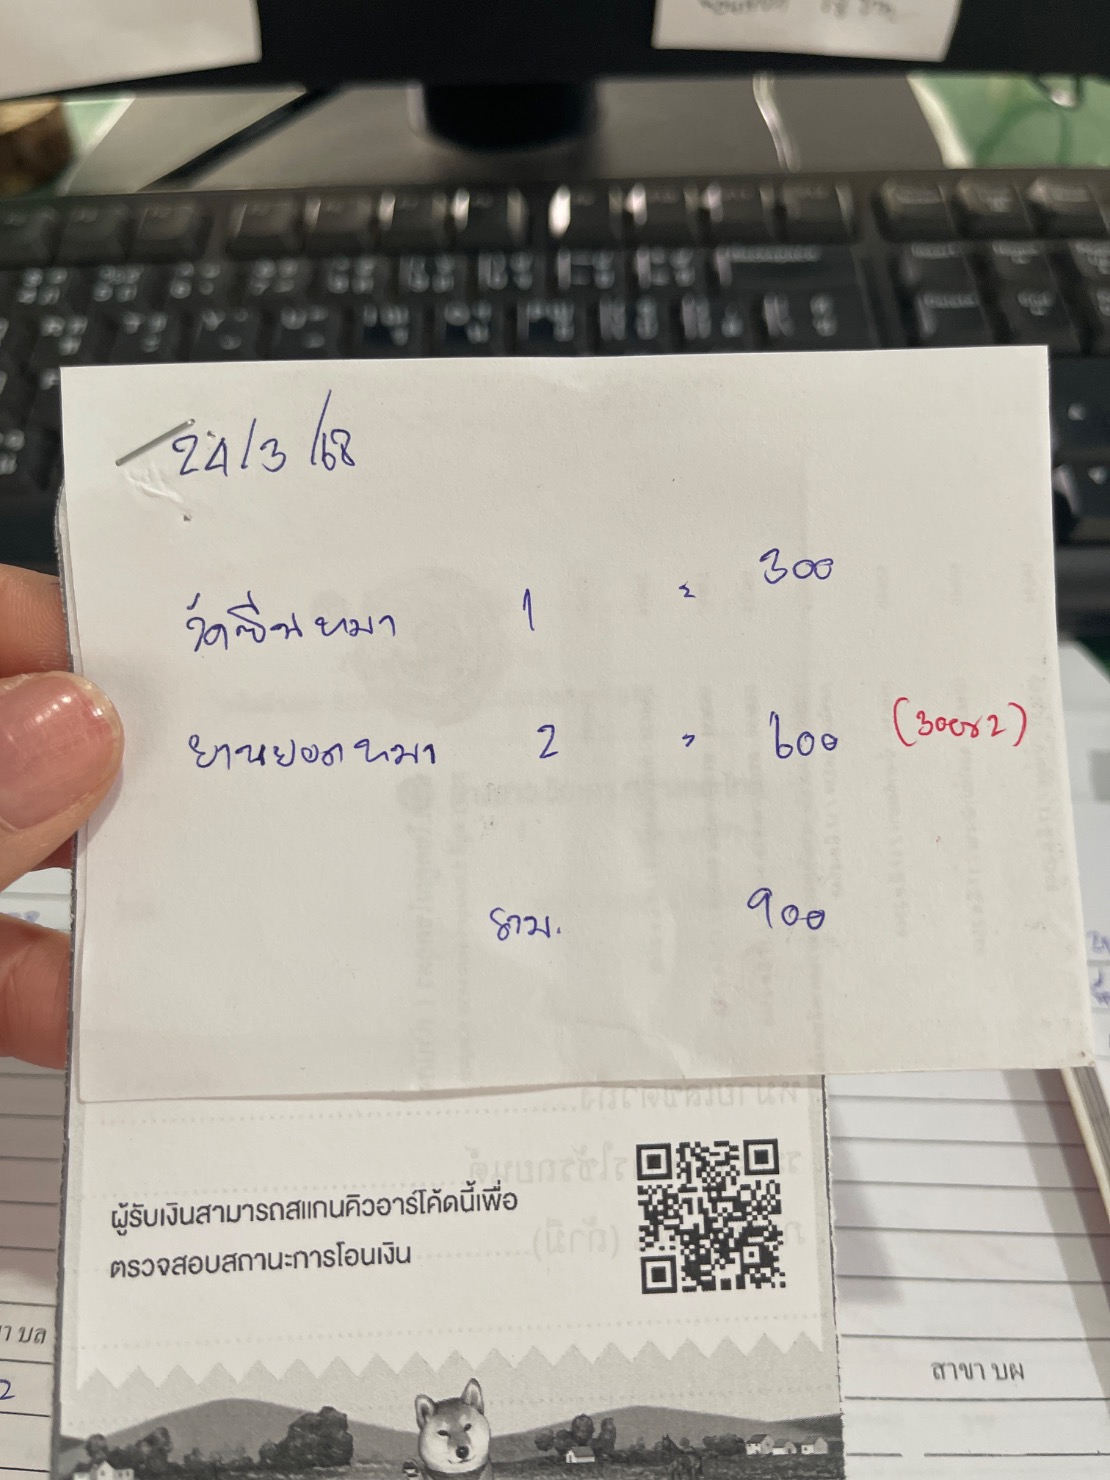 24/3/68
วัคซีนหมา 1 = 300
ยาหยอดหมา 2 = 600 (300x2)
รวม. 900
ผู้รับเงินสามารถสแกนคิวอาร์โค้ดนี้เพื่อ
ตรวจสอบสถานะการโอนเงิน
สาขา บผ